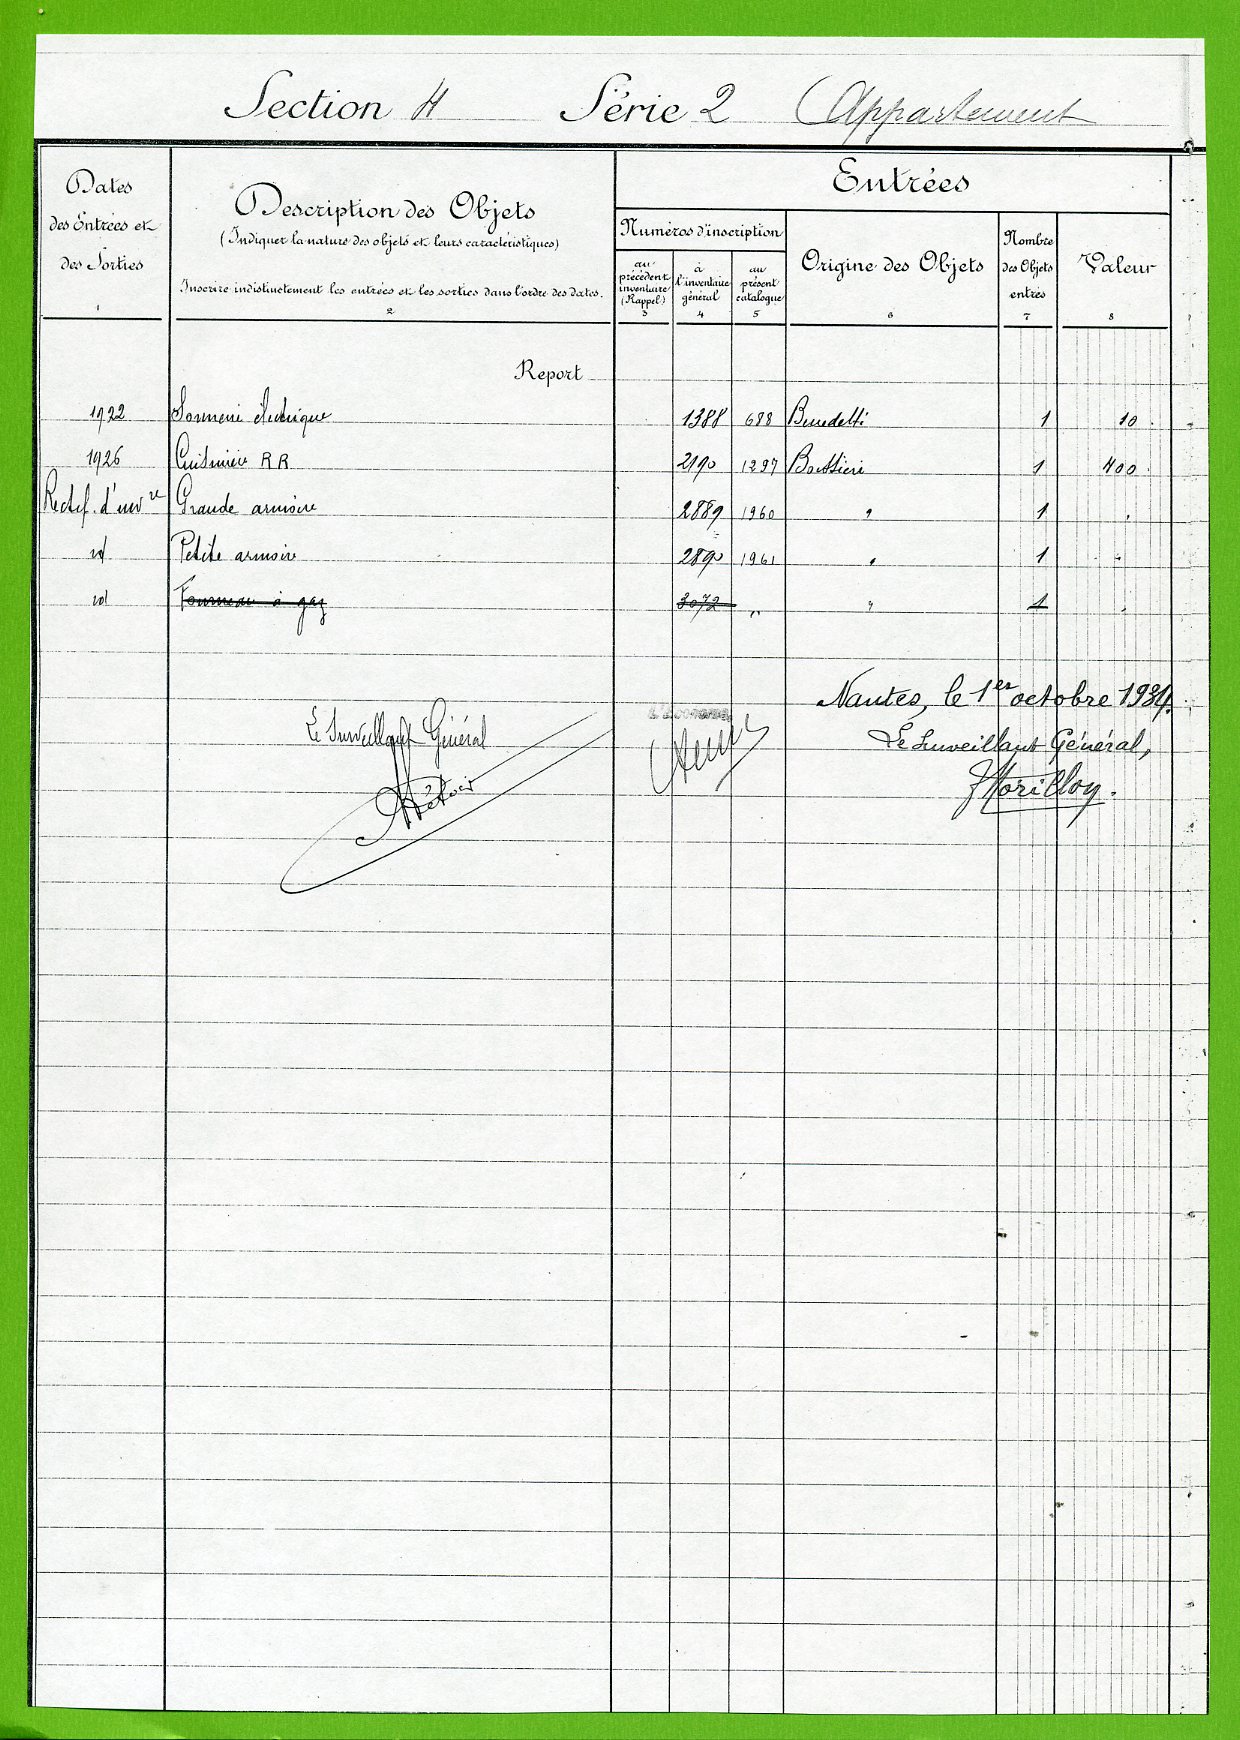 Section H Série 2 Appartement
Dates des Entrées et des Sorties
1
Description des Objets
(Indiquer la nature des objets et leurs caractéristiques)
Inscrire indistinctement les entrées et les sorties dans l'ordre des dates.
2
Entrées
Numéros d'inscription
au précédent inventaire (Rappel)
3
à l'inventaire général
4
au présent catalogue
5
Origine des Objets
6
Nombre des Objets entrés
7
Valeur
8
Report
1922 Sonnerie électrique 1388 688 Benedetti 1 10
1926 Cuisinière RR 2190 1297 1 400
Rectif. d'invre Grande armoire 2889 1960 " 1 "
id Petite armoire 2890 1961 " 1 "
id Fourneau à gaz 3072 " " 1 "
Nantes, le 1er octobre 1934.
Le Surveillant Général
Le Surveillant Général,